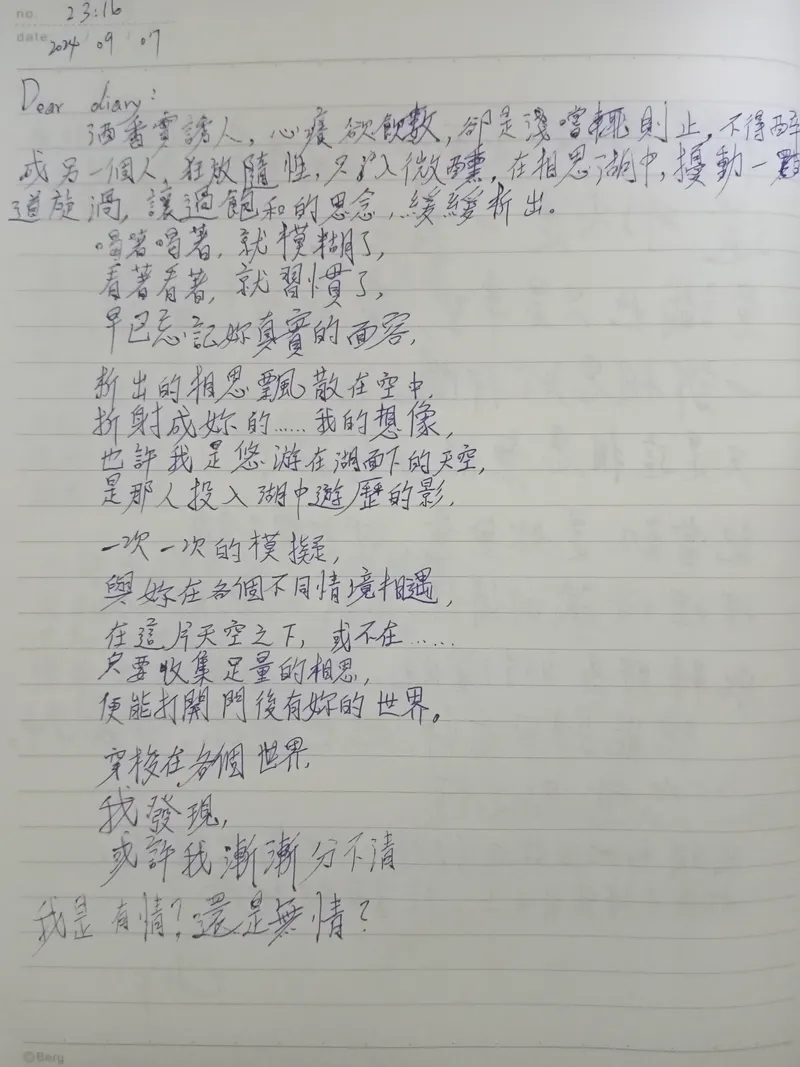 no. 23:16
date 2024 / 09 / 07
Dear diary:
酒香實誘人,心癢欲飲數,卻是淺嚐輒則止,不得醉
成另一個人,狂放隨性,只 入微醺,在相思湖中,擾動一點
道旋渦,讓過飽和的思念,緩緩析出。
喝著喝著,就模糊了,
看著看著,就習慣了,
早已忘記妳真實的面容,
析出的相思飄散在空中,
折射成妳的……我的想像,
也許我是悠游在湖面下的天空,
是那人投入湖中遊歷的影,
一次一次的模擬,
與妳在各個不同情境相遇,
在這片天空之下,或不在……
只要收集足量的相思,
便能打開門後有妳的世界。
穿梭在各個世界,
我發現,
或許我漸漸分不清
我是有情?還是無情?
©Berg